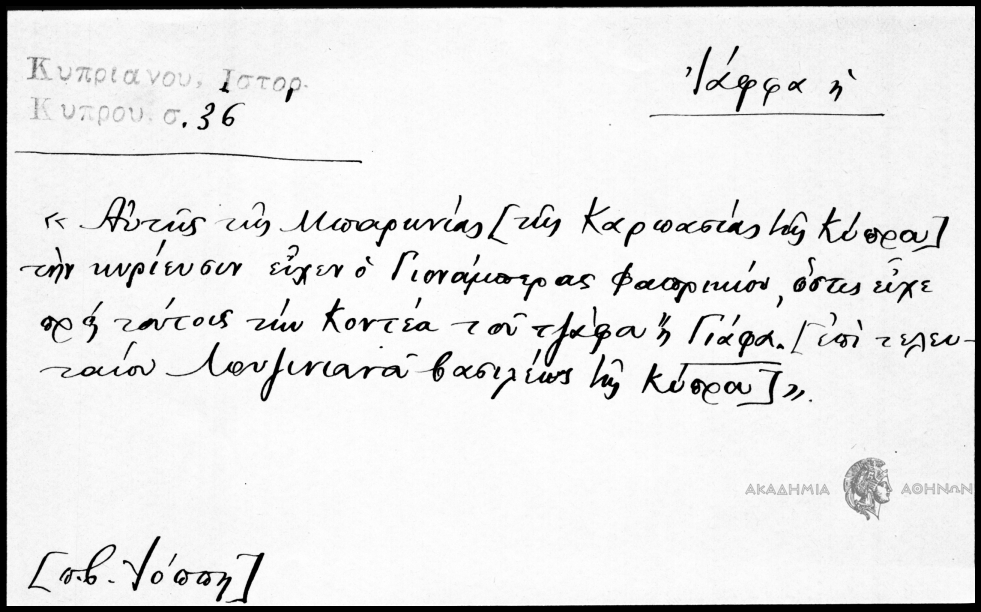 Κυπριανου, Ιστορ.
Κυπρου σ. 36
Ἰάφφα ἡ
« Αὐτῆς τῆς Μπαρωνίας [τῆς Καρπασίας τῆς Κύπρου]
τὴν κυρίευσιν εἶχεν ὁ Γιονάμπερας Φαπρικίου, ὅστις εἶχε
πρὸς τούτοις τὴν Κοντέα τοῦ τζάφα ἢ Γιάφα. [ἐπὶ τελευ-
ταίου Λουζινιανοῦ βασιλέως τῆς Κύπρου] ».
ΑΚΑΔΗΜΙΑ ΑΘΗΝΩΝ
[π.β. Ἰόππη]